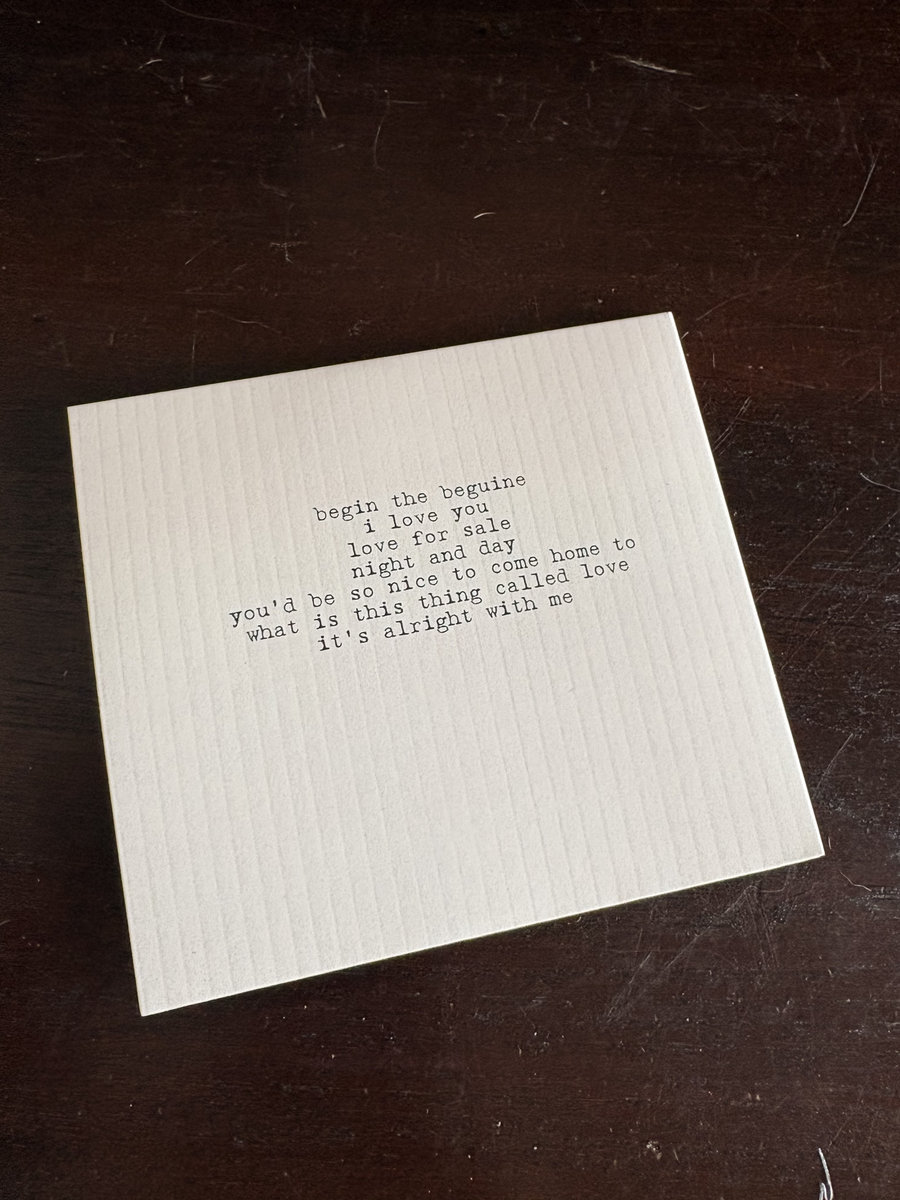 begin the beguine
i love you
love for sale
night and day
you'd be so nice to come home to
what is this thing called love
it's alright with me